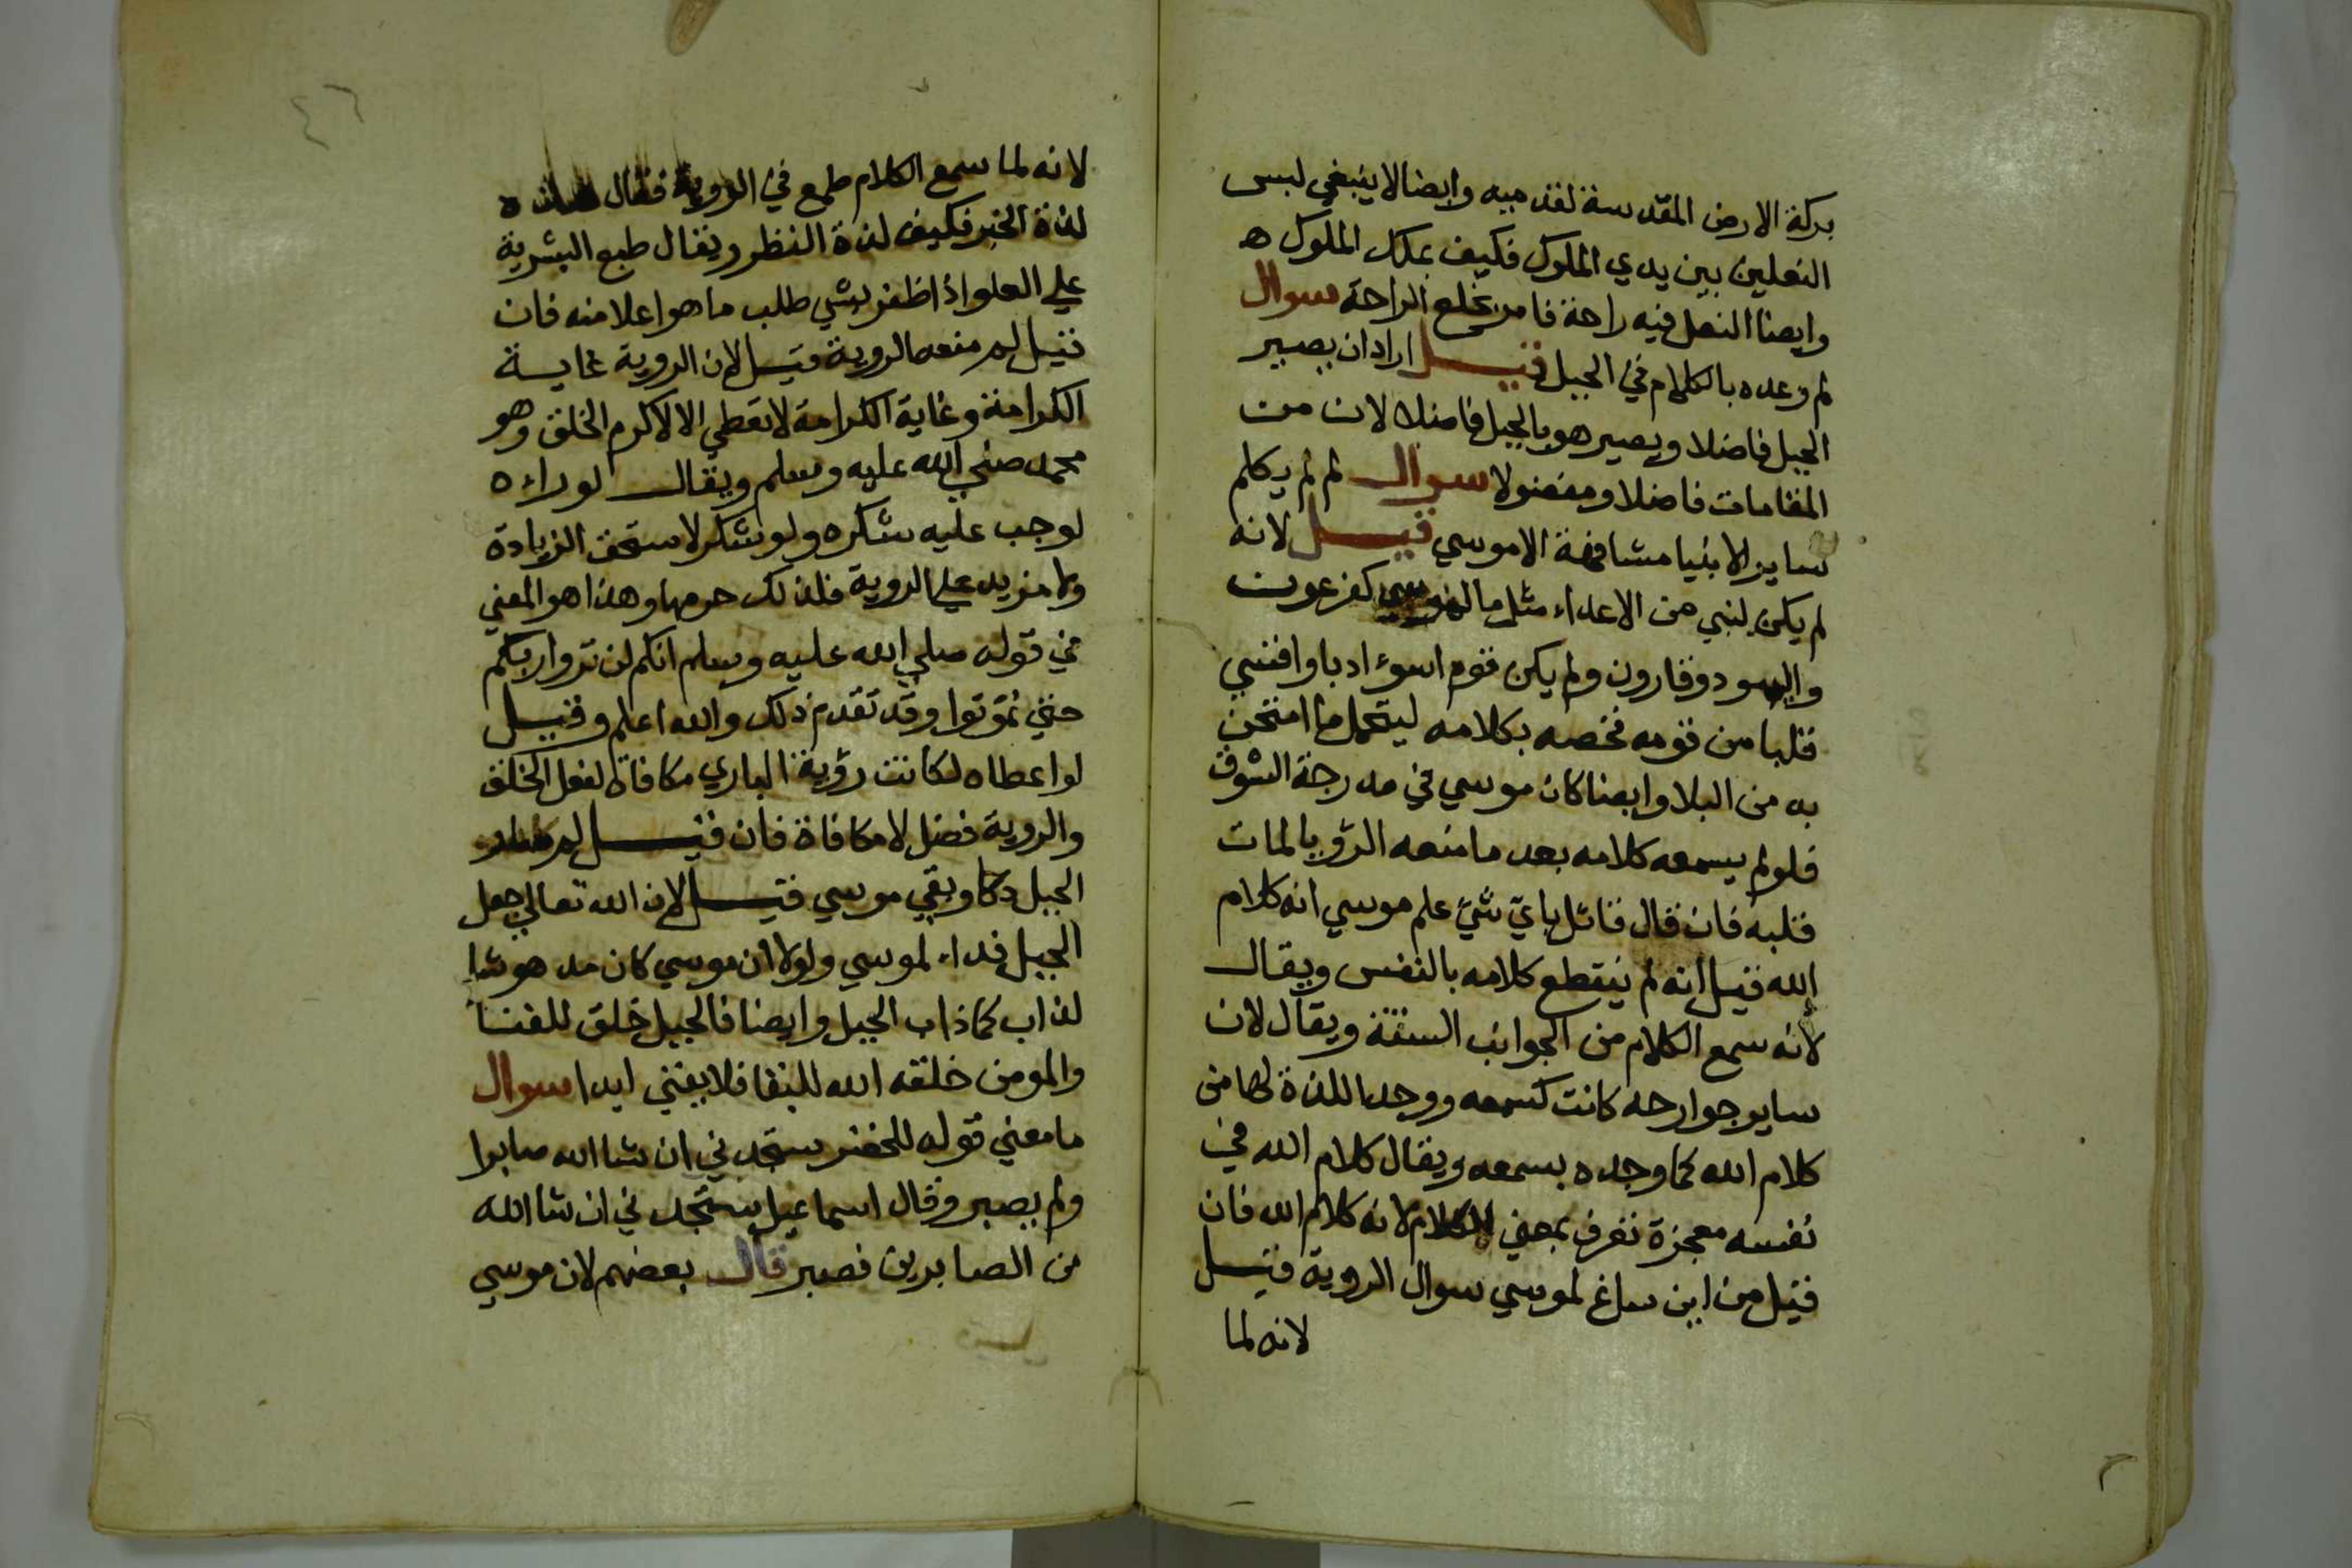 بركة الارض المقدسة لقدميه وايضا لا ينبغي لبس
النعلين بين يدي الملوك فكيف بملك الملوك ه
وايضا النعل فيه راحة فامر بخلع الراحة سوال
لم وعده بالكلام في الجبل قيل اراد ان يصير
الجبل فاضلا ويصير هو بالجبل فاضلا لان من
المقامات فاضلا ومفضولا سوال لم لم يكلم
ساير الانبيا مشافهة الا موسي قيل لانه
لم يكن لنبي من الاعداء مثل ما لموسي كفرعون
واليهود وقارون ولم يكن قوم اسوء ادبا واقسي
قلبا من قومه فخصه بكلامه ليتحمل ما امتحن
به من البلا وايضا كان موسي في مدرجة الشوق
فلو لم يسمعه كلامه بعد ما منعه الرؤيا لمات
قلبه فان قال قائل باي شي علم موسي انه كلام
الله قيل انه لم ينقطع كلامه بالنفس ويقال
لانه سمع الكلام من الجوانب الستة ويقال لان
ساير جوارحه كانت كسمعه ووجد اللذة لها من
كلام الله كما وجده بسمعه ويقال كلام الله في
نفسه معجزة تعرف بمعني الكلام لانه كلام الله فان
قيل من اين ساغ لموسي سوال الروية قيل
لانه لما
٤٦
لانه لما سمع الكلام طمع في الروية فقال هذه
لذة الخبر فكيف لذة النظر ويقال طبع البشرية
علي العلو اذا ظفر بشي طلب ما هو اعلا منه فان
قيل لم منعه الروية قيل لان الروية غاية
الكرامة وغاية الكرامة لا تعطي الا لاكرم الخلق وهو
محمد صلي الله عليه وسلم ويقال لو راءه
لوجب عليه شكره ولو شكر لاستحق الزيادة
ولا مزيد علي الروية فلذلك حرمها وهذا هو المعني
في قوله صلي الله عليه وسلم انكم لن تروا ربكم
حتي تموتوا وقد تقدم ذلك والله اعلم وقيل
لو اعطاه لكانت رؤية الباري مكافاة لفعل الخلق
والروية فضل لا مكافاة فان قيل لم صار
الجبل دكا وبقي موسي قيل لان الله تعالي جعل
الجبل فداء لموسي ولولا ان موسي كان مدهوشا
لذاب كما ذاب الجبل وايضا فالجبل خلق للفنا
والمومن خلقه الله للبقا فلا يفني ابدا سوال
ما معني قوله للخضر ستجدني ان شا الله صابرا
ولم يصبر وقال اسماعيل ستجدني ان شا الله
من الصابرين فصبر قال بعضهم لان موسي